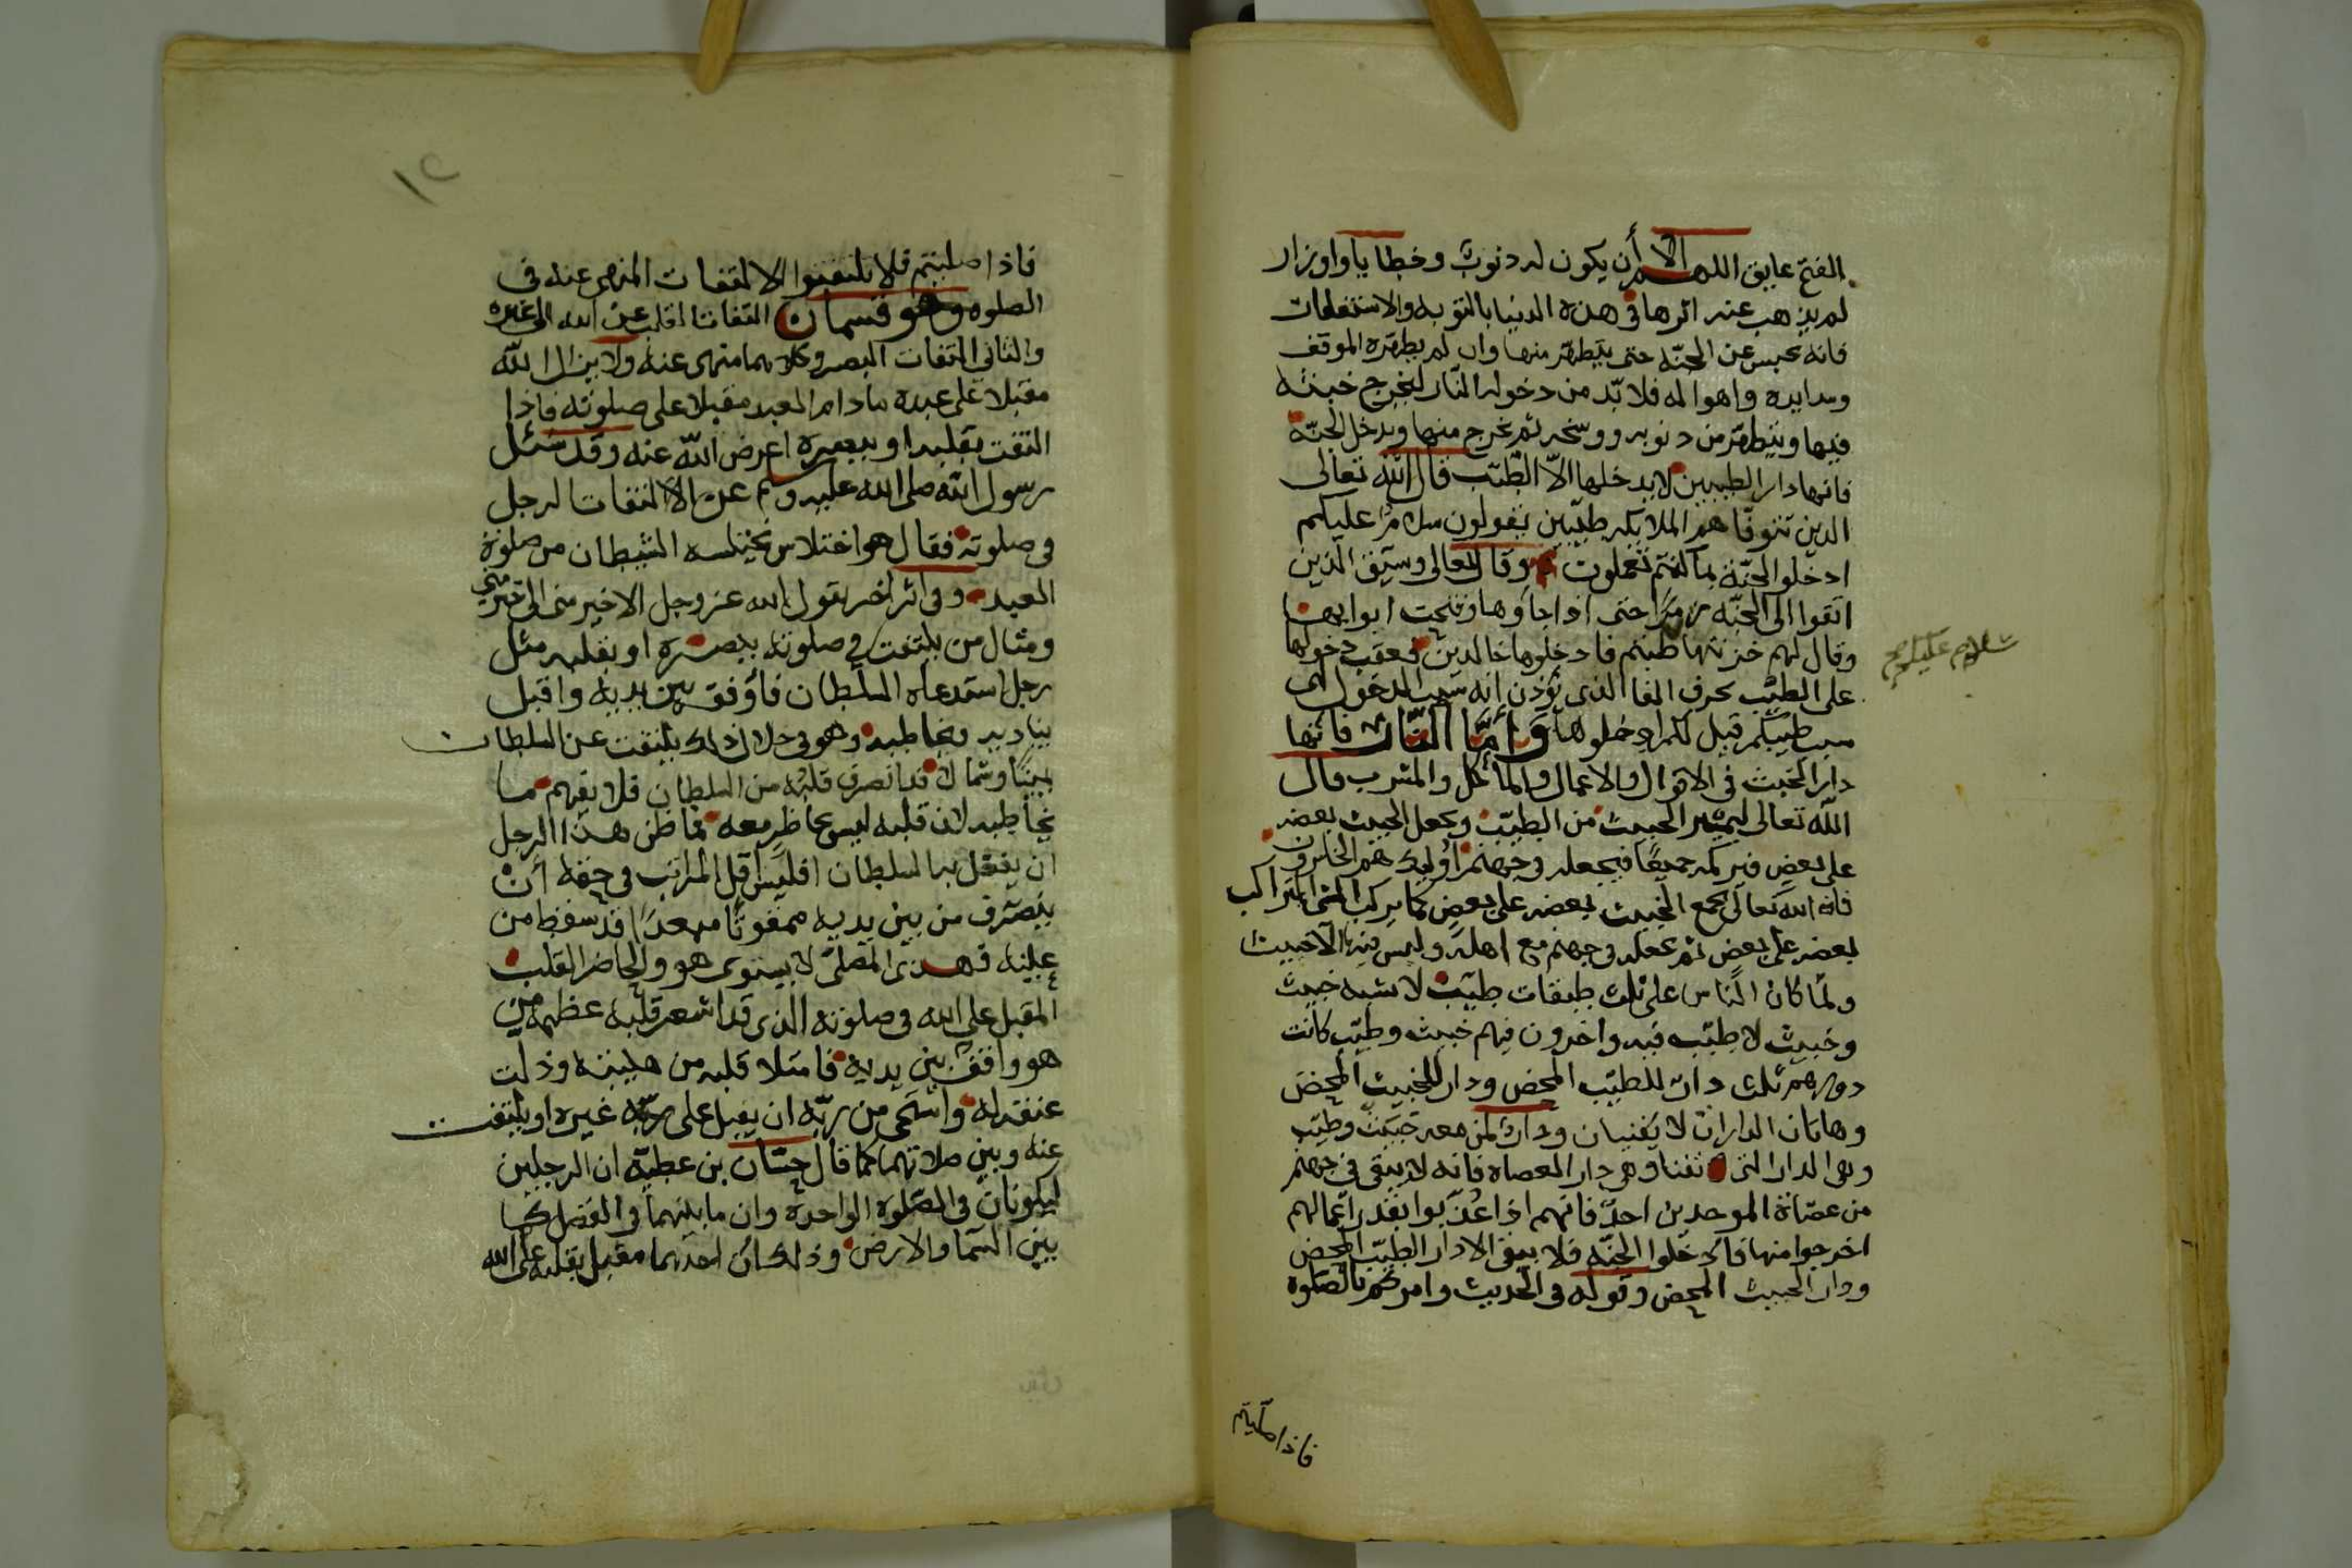 الفتح عايق اللهم الا أن يكون له ذنوب وخطايا واوزار
لم يذهب عنه اثرها في هذه الدنيا بالتوبه والاستغفار
فانه يحبس عن الجنّه حتى يتطهّر منها وان لم يطهّره الموقف
وشدايده واهواله فلا بّد من دخوله النّار ليخرج خبثه
فيها ويتطهّر من ذنوبه ووسخه ثم يخرج منها ويدخل الجنّة
فانها دار الطيبين لا يدخلها الاّ الطيّب قال الله تعالى
الدين تتوفّاهم الملايكه طيّبين يقولون سلامٌ عليكم
ادخلوا الجنّة بما كنتم تعملون وقال تعالى وسيق الّذين
اتقوا الى الجنّه زمرًا حتى اذا جاؤها وفتحت ابوابها
وقال لهم خزنتها طبتم فادخلوها خالدين فعقب دخولها
سلام عليكم صح
على الطيّب بحرف الفا الذى يؤذن انه سبب الدخول اى
بسبب طيبكم قيل لكم ادخلوها وَأمَّا النَّار فانها
دار الخبث في الاقوال والاعمال والمأكل والمشرب قال
الله تعالى ليميّز الخبيث من الطيّب ويجعل الخبيث بعضه
على بعضٍ فيركمه جميعًا فيجعله في جهنم اوليك هم الخاسرون
فالله تعالى يجمع الخبيث بعضه على بعضٍ كما يركب الشى المتراكب
بعضه على بعض ثم يجعله في جهنم مع اهله وليس فيها الا خبيث
ولمّا كان النّاس على ثلث طبقات طيّب لا يشبه خبيث
وخبيث لا طيّب فيه واخرون فيهم خبيث وطيّب كانت
دورهم ثلث دار للطيّب المحض ودار للخبيث المحض
وهاتان الداران لا يفنيان ودار لمن معه خبيث وطيّب
وهى الدار التى تفنا وهى دار العصاه فانه لا يبقى في جهنم
من عصاة الموحدين احدٌ فانهم اذا عُذّبوا بقدر اعمالهم
اخرجوا منها فادخلوا الجنّه فلا يبقى الا دار الطيّب المحض
ودار الخبيث المحض وقوله في الحديث وامركم بالصّلوة
فاذا صليتم
١٢
فاذا صليتم فلا تلتفتوا الالتفات المنهى عنه في
الصلوه وهو قسمان التفات القلب عن الله الى غيره
والثاني التفات البصر وكلاهما منهى عنه ولا يزال الله
مقبلا على عبده ما دام العبد مقبلا على صلوته فاذا
التفت بقلبه او ببصره اعرض الله عنه وقد سئل
رسول الله صلى الله عليه وسلم عن الالتفات الرجل
في صلوته فقال هو اختلاس يختلسه الشيطان من صلوة
العبد وفي اثرٍ اخر يقول الله عز وجل الا خير منى الى خير منى
ومثال من يلتفت في صلوته ببصره او بقلبه مثل
رجل استدعاه السلطان فأوقفه بين يديه واقبل
يناديه ويخاطبه وهو في خلال ذلك يلتفت عن السلطان
يمينًا وشمالا قد انصرف قلبه من السلطان فلا يفهم ما
يخاطبه لان قلبه ليس بحاظرٍ معه فما ظن هذا الرجل
ان يفعل به السلطان افليس اقل المراتب في حقه ان
ينصرف من بين يديه ممقوتًا مبعدًا قد سقط من
عينيه فهذى المصلّى لا يستوى هو والحاضر القلب
المقبل على الله في صلوته الذى قد اشعر قلبه عظمه من
هو واقف بين يديه فامتلا قلبه من هيبته وذلت
عنقه له واستحى من ربّه ان يقبل على ربّه غيره او يلتفت
عنه وبين صلاتهما كما قال حسّان بن عطيّه ان الرجلين
ليكونان في الصّلوة الواحدة وان ما بينهما في الفضل كما
بين السّما والارض وذلك أن احدهما مقبل بقلبه على الله